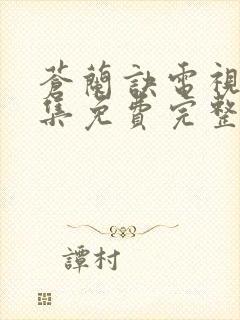 蒼蘭訣電視
集免費完整
譚村